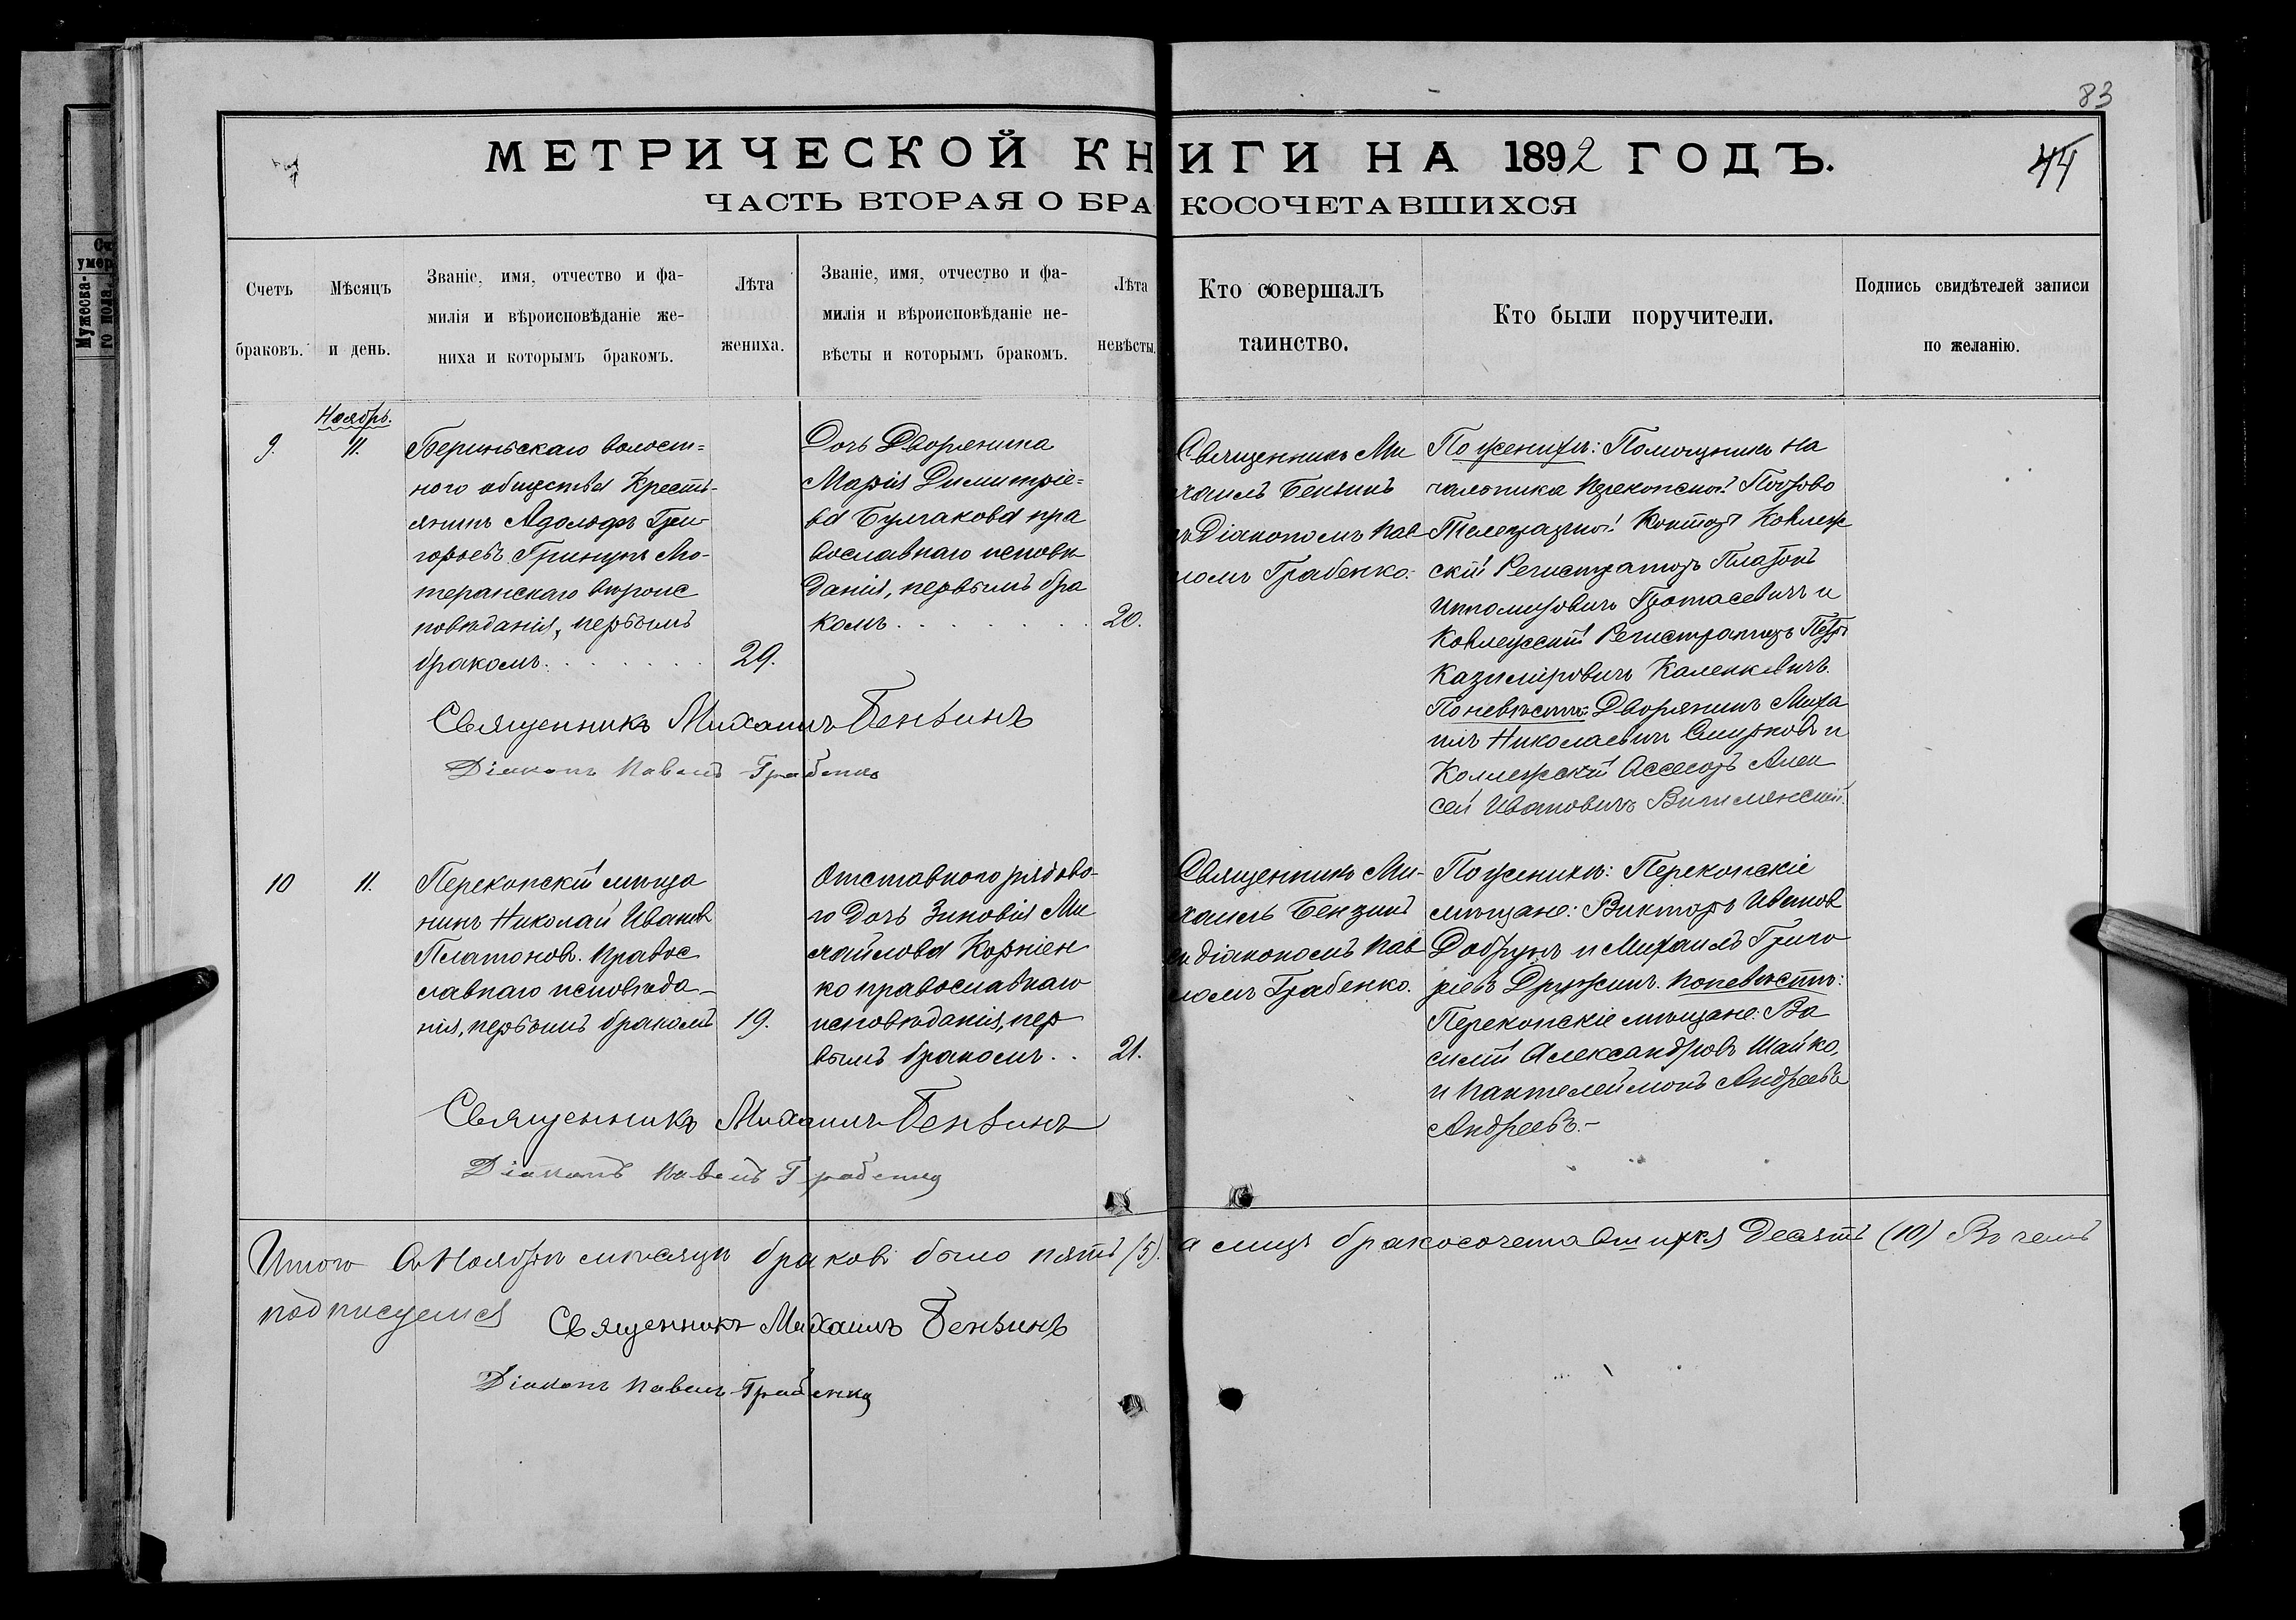 83
МЕТРИЧЕСКОЙ КНИГИ НА 1892 ГОДЪ.
44
ЧАСТЬ ВТОРАЯ О БРАКОСОЧЕТАВШИХСЯ
Счетъ
браковъ.
Мѣсяцъ
и день.
Званіе, имя, отчество и фа-
милія и вѣроисповѣданіе же-
ниха и которымъ бракомъ.
Лѣта
жениха.
Званіе, имя, отчество и фа-
милія и вѣроисповѣданіе не-
вѣсты и которымъ бракомъ.
Лѣта
невѣсты.
Кто совершалъ
таинство.
Кто были поручители.
Подпись свидѣтелей записи
по желанію.
умер
Мужеска-
го пола.
Ноябрь.
9.
11.
волост=
ного общества Кресть-
янинъ Адольфъ Гри-
горьевъ Лю-
теранскаго вѣроис
повѣданія, первымъ
бракомъ
29.
Дочь Дворянина
Марія Димитріе=
ва Булгакова пра
вославнаго исповѣ
данія, первымъ бра
комъ
20.
Священникъ Ми
хаилъ Бензинъ
съ Діакономъ Пав
ломъ Грабенко.
По женихѣ: Помощникъ На
чальника Перекопской Почтово
Телеграфной Конторы Коллеж
скій Регистраторъ Платонъ
Протасевичъ и
Коллежскій Регистраторъ Петръ
Казиміровичъ Каленкевичъ.
По невѣстѣ: Дворянинъ Миха
илъ Николаевичъ Смирновъ и
Коллежскій Ассесоръ Алек
сѣй Ивановичъ
Священникъ Михаилъ Бензинъ
Діаконъ Павелъ Грабенко
10
11.
Перекопскій мѣща
нинъ Николай Ивановъ
Платоновъ. Правос
лавнаго исповѣда-
нія, первымъ бракомъ
19.
Отставного рядово-
го дочь Зиновія Ми
хайлова Корніен
ко православнаго
исповѣданія, пер
вымъ бракомъ..
21.
Священникъ Ми-
хаилъ Бензинъ
съ діакономъ Пав
ломъ Грабенко.
По женихѣ: Перекопскіе
мѣщане: Викторъ Ивановъ
и Михаилъ Григо
рьевъ Дружинъ. По невѣстѣ:
Перекопскіе мѣщане: Ва
силій Александровъ Шайко,
и Пантелеймонъ Андреевъ
Андреевъ.-
Священникъ Михаилъ Бензинъ
Діаконъ Павелъ Грабенко
Итого въ Ноябрѣ мѣсяцѣ браковъ было пять (5). а лицъ бракосочетавшихся Десять (10) Въ чемъ
подписуемся
Священникъ Михаилъ Бензинъ
Діаконъ Павелъ Грабенко